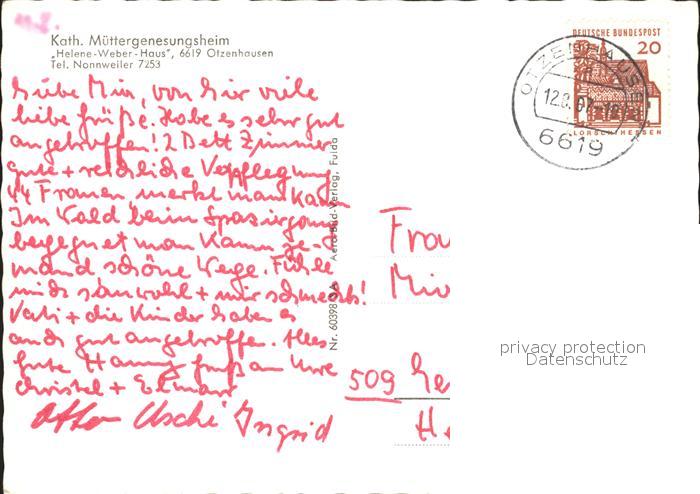 Kath. Müttergenesungsheim
„Helene-Weber-Haus", 6619 Otzenhausen
Tel. Nonnweiler 7253
DEUTSCHE BUNDESPOST
20
LORSCH/HESSEN
OTZENHAUSEN
12.8.
6619
von hier viele
liebe Grüße. Habe es sehr gut
angetroffen! 2 Bett Zimmer
gute + reichliche Verpflegung
44 Frauen, merkt man kaum
Im Wald beim Spaziergang
begegnet man kaum je-
mand schöne Wege. Fühle
mich sauwohl + mir schmeckts!
Vati + die Kinder haben es
auch gut angetroffen. Alles
Gute Gruß an Uwe
Christel +
Otto Uschi Ingrid
Nr. 60398
Aero-Bild-Verlag, Fulda
Frau
509
privacy protection
Datenschutz